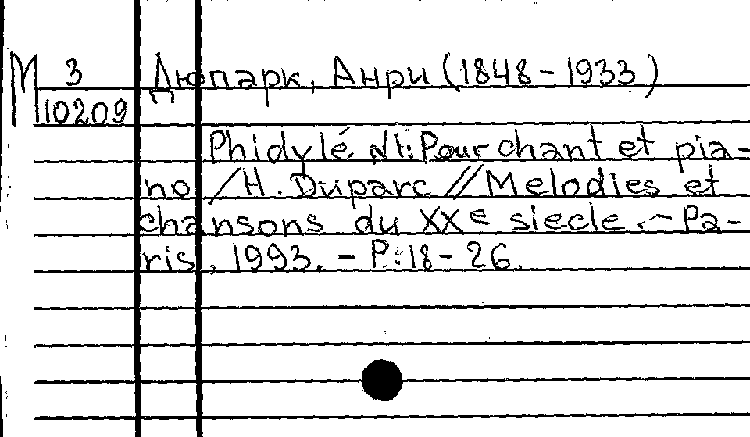 М 3 Дюпарк, Анри (1848-1933)
10209
Phidylé N1: Pour chant et pia-
no /H. Duparc // Melodies et
chansons du XXe siecle. - Pa-
ris, 1993. - P. 18-26.